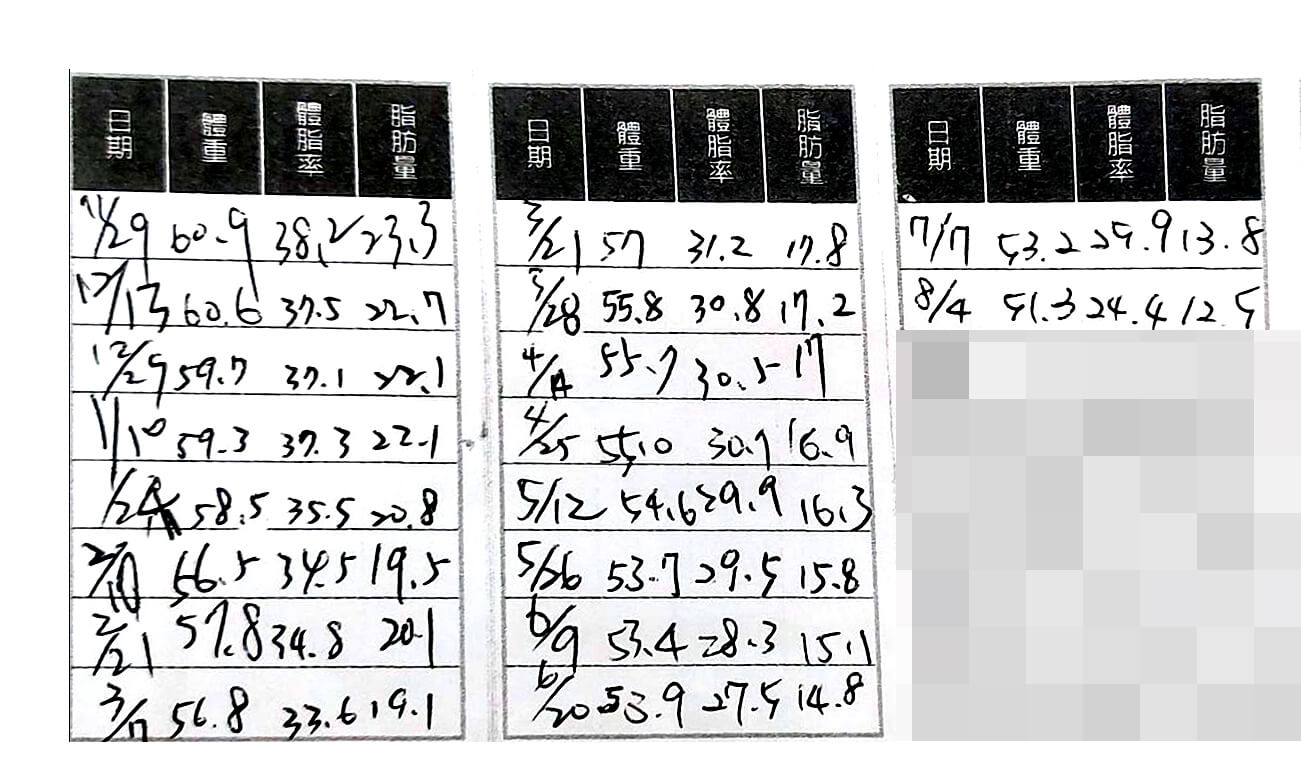 日期 體重 體脂率 脂肪量
11/29 60.9 38.2 23.3
12/13 60.6 37.5 22.7
12/29 59.7 37.1 22.1
1/10 59.3 37.3 22.1
1/24 58.5 35.5 20.8
2/10 56.5 34.5 19.5
2/21 57.8 34.8 20.1
3/7 56.8 33.6 19.1
日期 體重 體脂率 脂肪量
3/21 57 31.2 17.8
3/28 55.8 30.8 17.2
4/14 55.7 30.5 17
4/25 55.0 30.7 16.9
5/12 54.6 29.9 16.3
5/26 53.7 29.5 15.8
6/9 53.4 28.3 15.1
6/20 53.9 27.5 14.8
日期 體重 體脂率 脂肪量
7/7 53.2 25.9 13.8
8/4 51.3 24.4 12.5